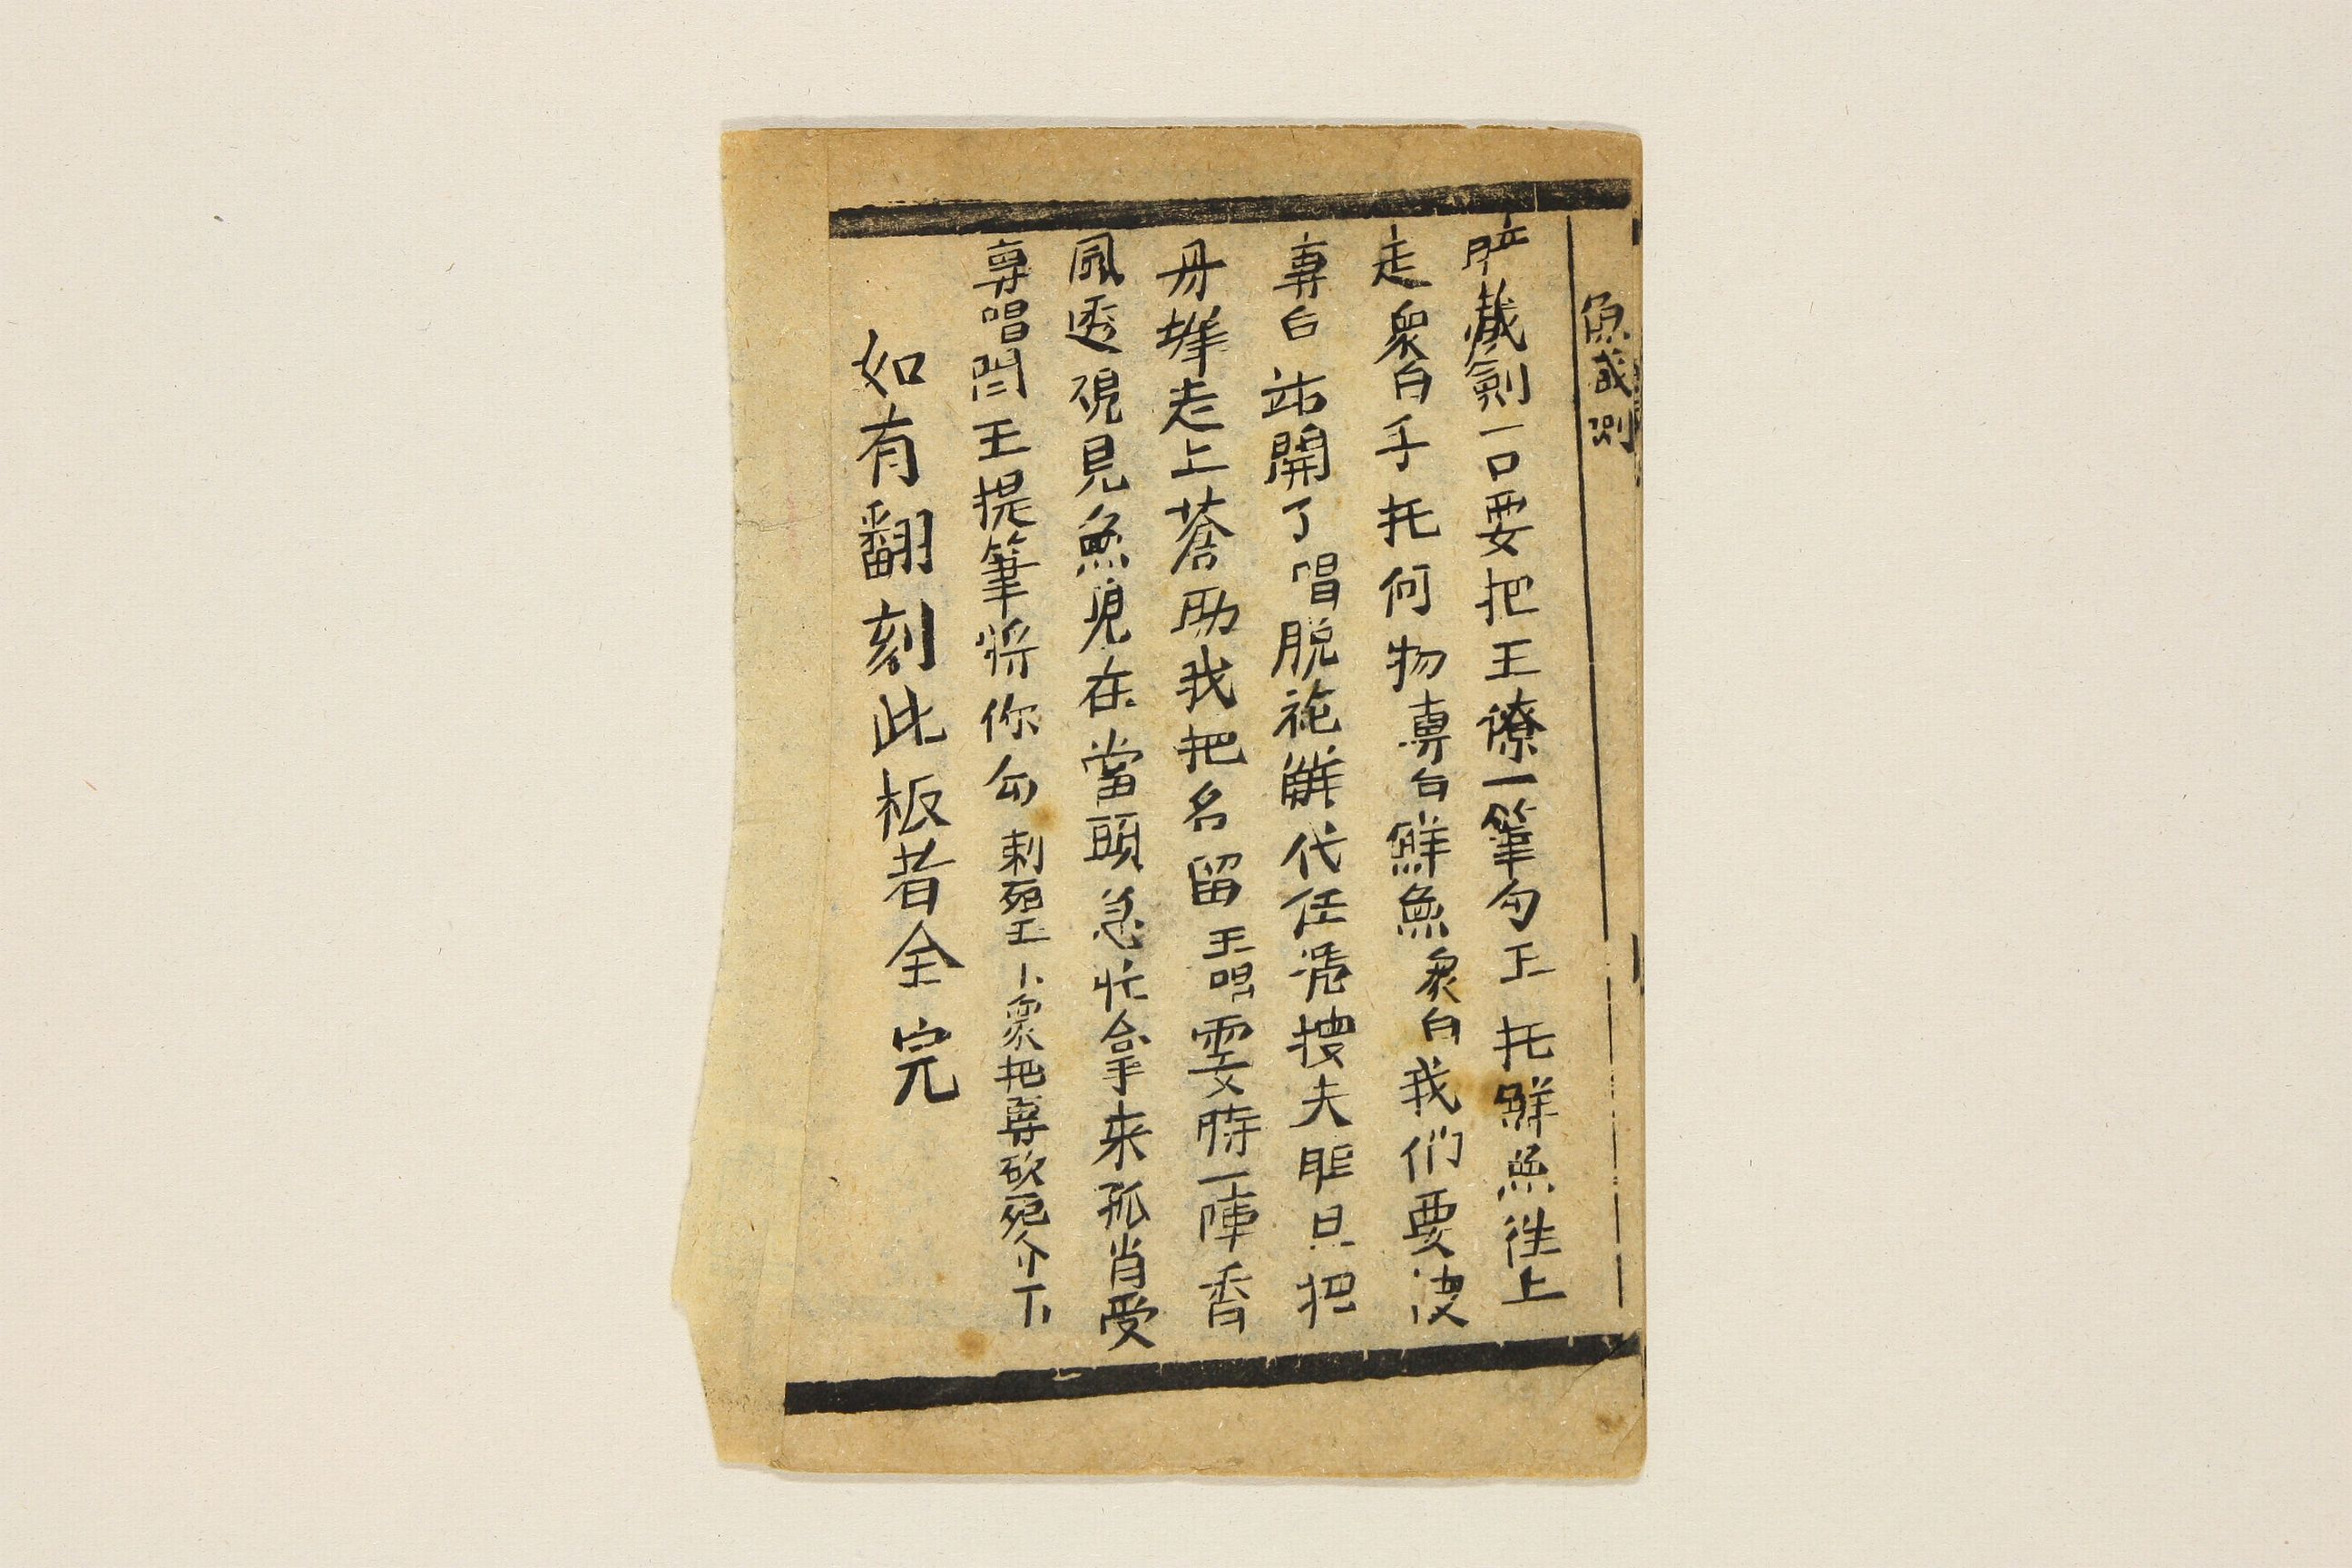 魚咸刘
肚藏劍一口要把王僚一筆勾正托鮮魚往上
走衆白手托何物專白鮮魚衆白我们要搜
專白站開了唱脱袍解代任凴搜夫肥旦把
丹墀走上蒼助我把名留王唱霎時一陣香
風透視見魚児在當頭急忙拿来孤肖受
專唱閆王提筆将你勾刺死王卜衆把專砍死介下
如有翻刻此板者全完